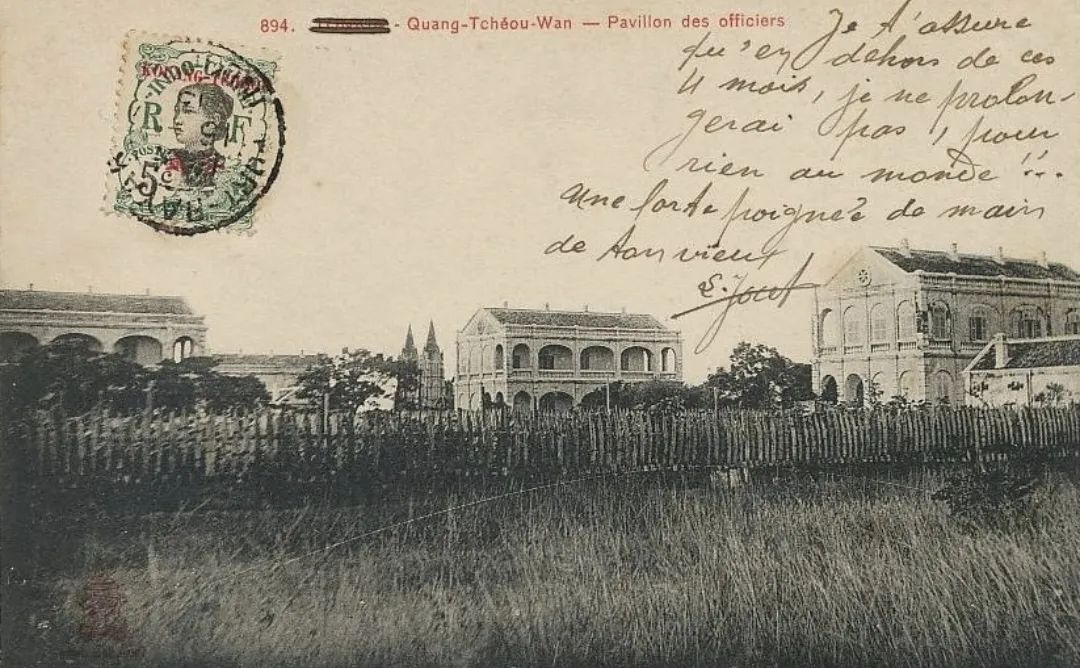 894. - Quang-Tchéou-Wan — Pavillon des officiers
Je t'assure
qu'en dehors de ces
4 mois, je ne prolon-
gerai pas, pour
rien au monde !!...
une forte poignée de main
de ton vieux
INDO-CHINE
KOUANG-TCHÉOU
R F
POSTES
5c